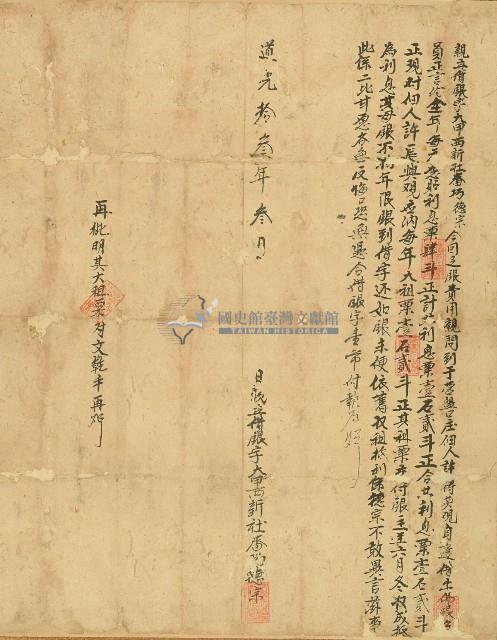 親立借銀字大甲西新社番巧德宗今因乏銀費用親問到于營盤口庄佃人許得英觀自邊借出佛銀
員正言約全年每元應貼利息粟肆斗正計共利息粟壹石貳斗正合共利息粟壹石貳斗
正現對佃人許長興觀應納每年大租粟壹石貳斗正其租粟付銀主至六月冬收成抵
為利息其母銀不拘年限銀到借字还如銀未便依舊收租抵利德宗不敢異言滋事
此係二比甘愿各無反悔口恐無憑合借銀字壹帋付執為炤
道光拾叁年叁月
日親立借銀字大甲西新社番巧德宗
再批明其大租粟對文乾手再炤
國史館臺灣文獻館
TAIWAN HISTORICA